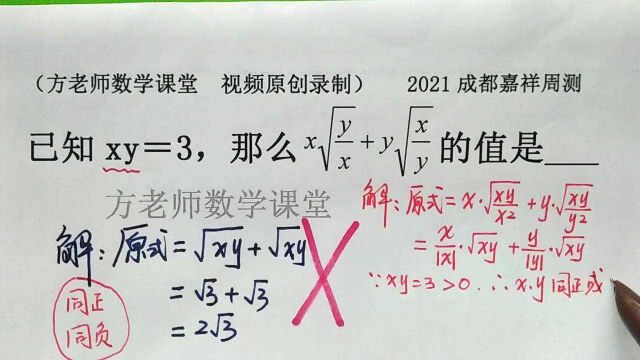 (方老师数学课堂 视频原创录制) 2021成都嘉祥周测
已知 xy=3，那么 x√(y/x)+y√(x/y) 的值是___
方老师数学课堂
解:原式=√xy+√xy
=√3+√3
=2√3
同正
同负
解:原式=x·√(xy/x²)+y·√(xy/y²)
=x/|x|·√xy+y/|y|·√xy
∵xy=3>0.∴x.y同正或